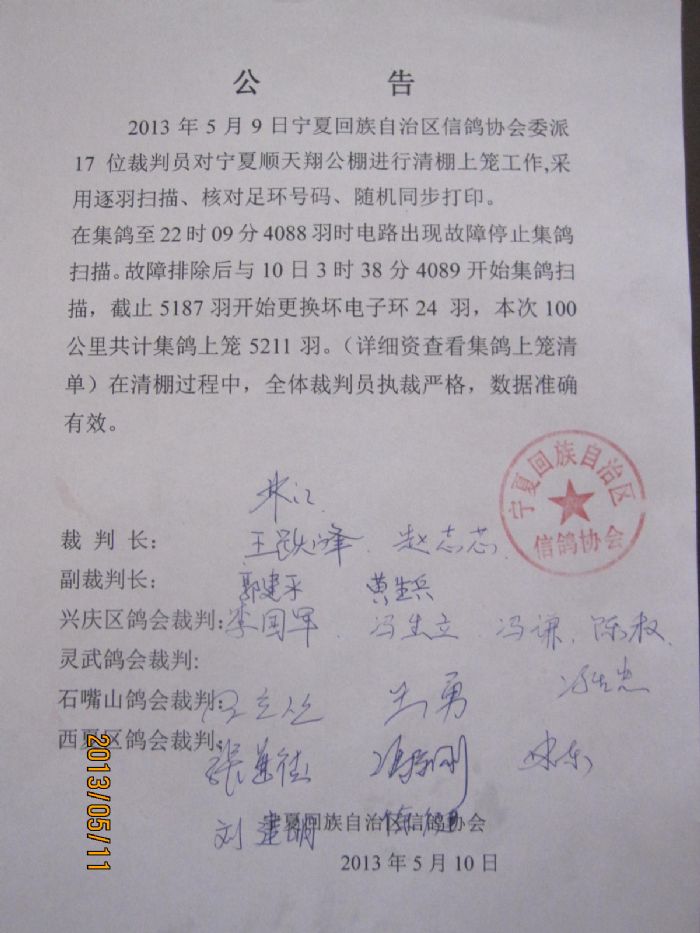 公 告
2013 年 5 月 9 日宁夏回族自治区信鸽协会委派
17 位裁判员对宁夏顺天翔公棚进行清棚上笼工作,采
用逐羽扫描、核对足环号码、随机同步打印。
在集鸽至 22 时 09 分 4088 羽时电路出现故障停止集鸽
扫描。故障排除后与 10 日 3 时 38 分 4089 开始集鸽扫
描，截止 5187 羽开始更换坏电子环 24 羽，本次 100
公里共计集鸽上笼 5211 羽。（详细资查看集鸽上笼清
单）在清棚过程中，全体裁判员执裁严格，数据准确
有效。
宁夏回族自治区
信鸽协会
裁 判 长： 赵志芯
副裁判长：
兴庆区鸽会裁判: 李国军 冯生立 冯谦 陈权
灵武鸽会裁判:
石嘴山鸽会裁判: 勇
西夏区鸽会裁判:
刘建明
宁夏回族自治区信鸽协会
2013 年 5 月 10 日
2013/05/11